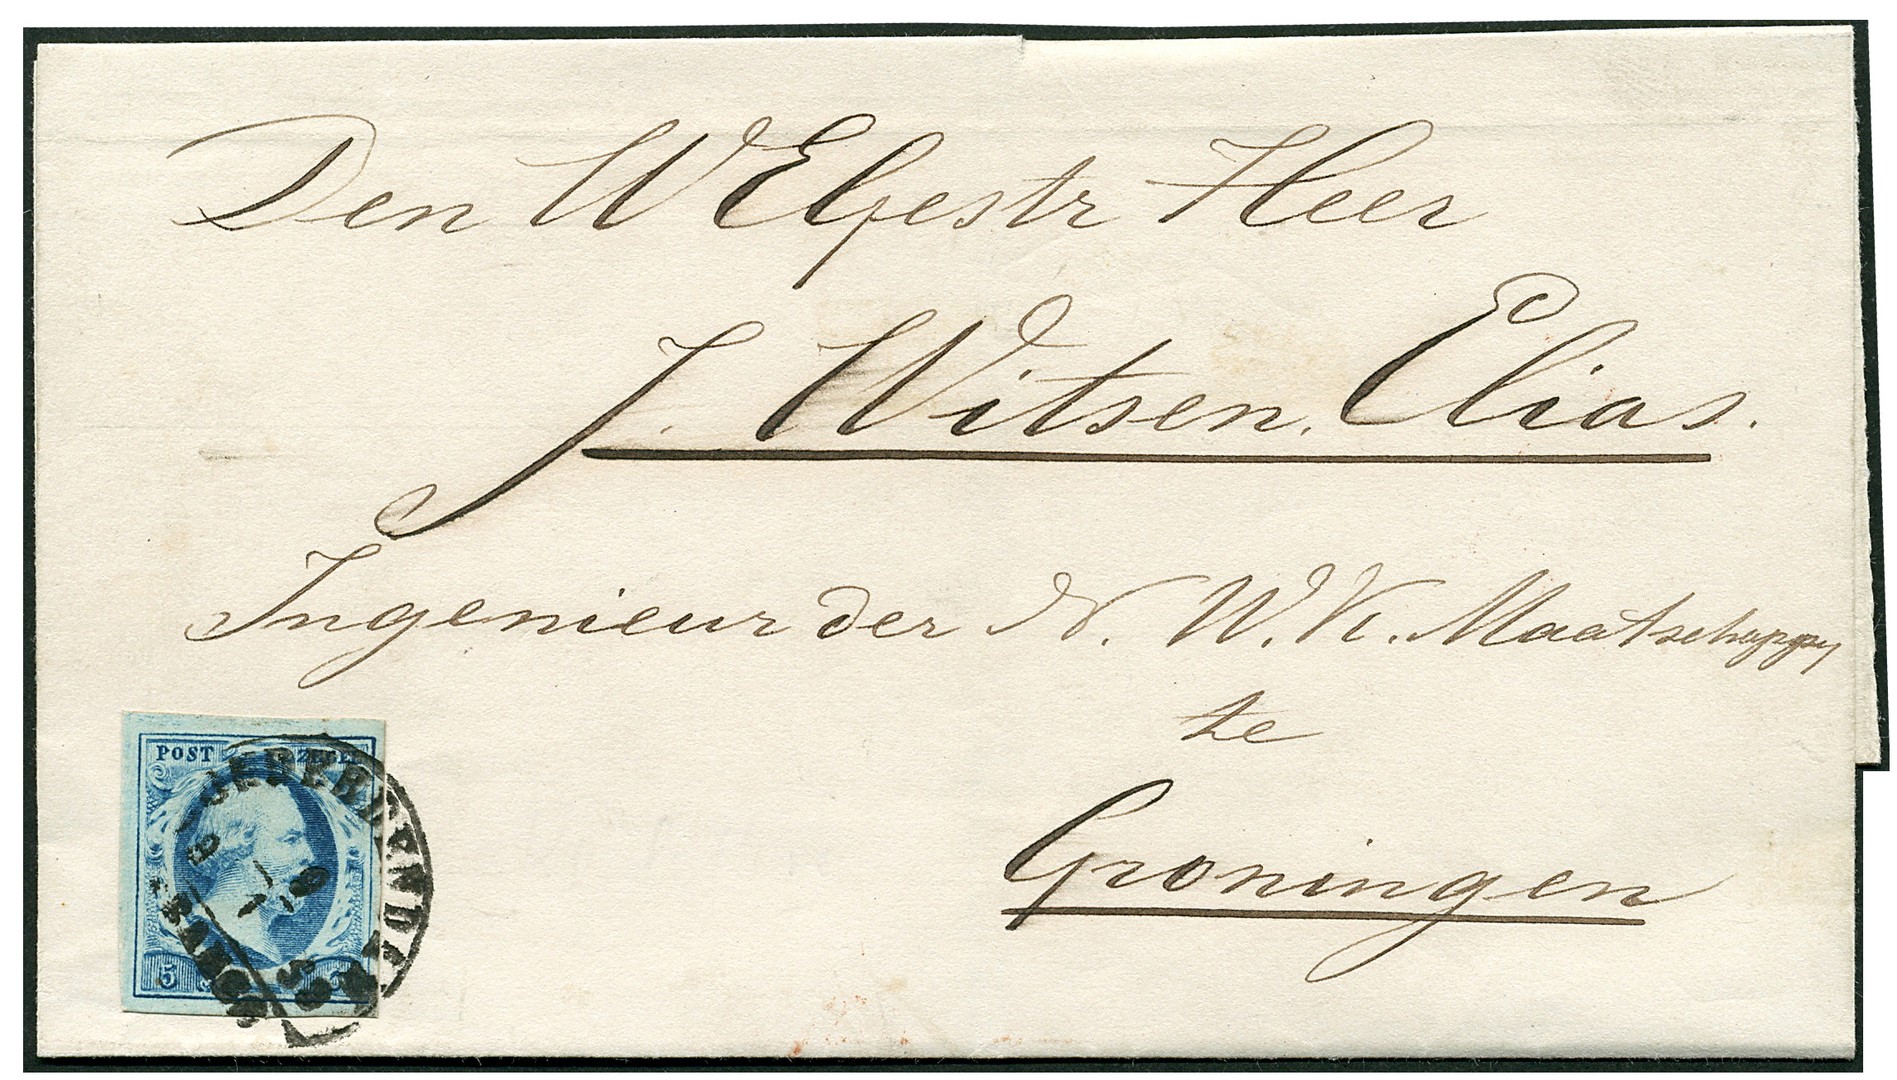 Den WElgestr Heer
J. Witsen Elias.
Ingenieur der N. W. K. Maatschappy
te
Groningen
POST
5